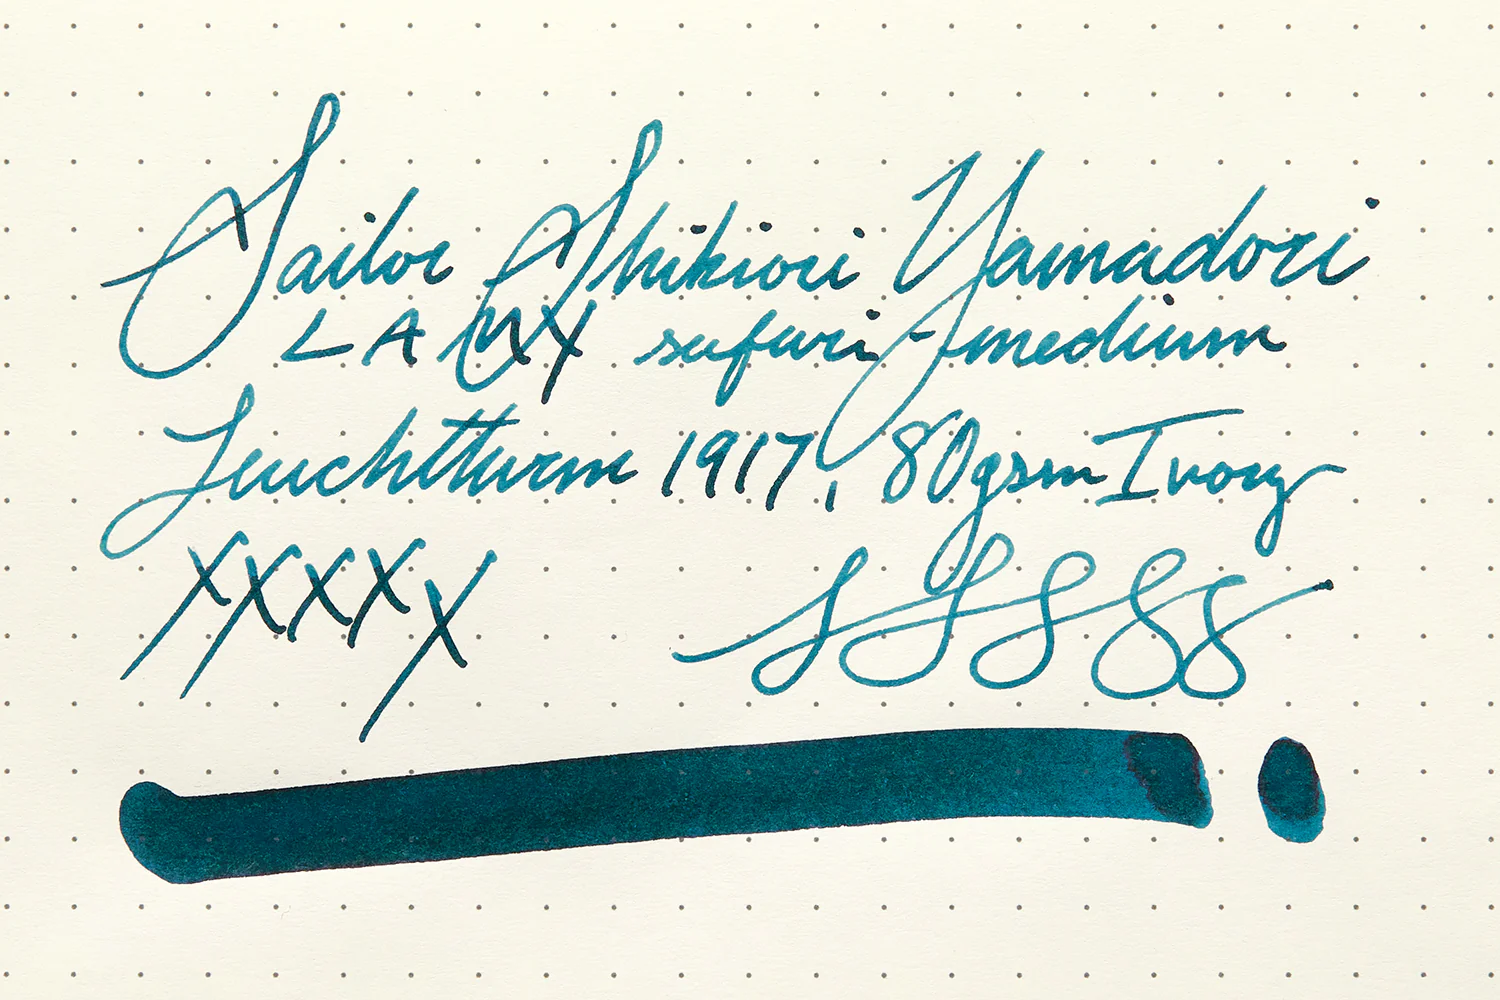 Sailor Shikiori Yamadori
LAMY safari-medium
Leuchtturm 1917, 80gsm Ivory
XXXXX